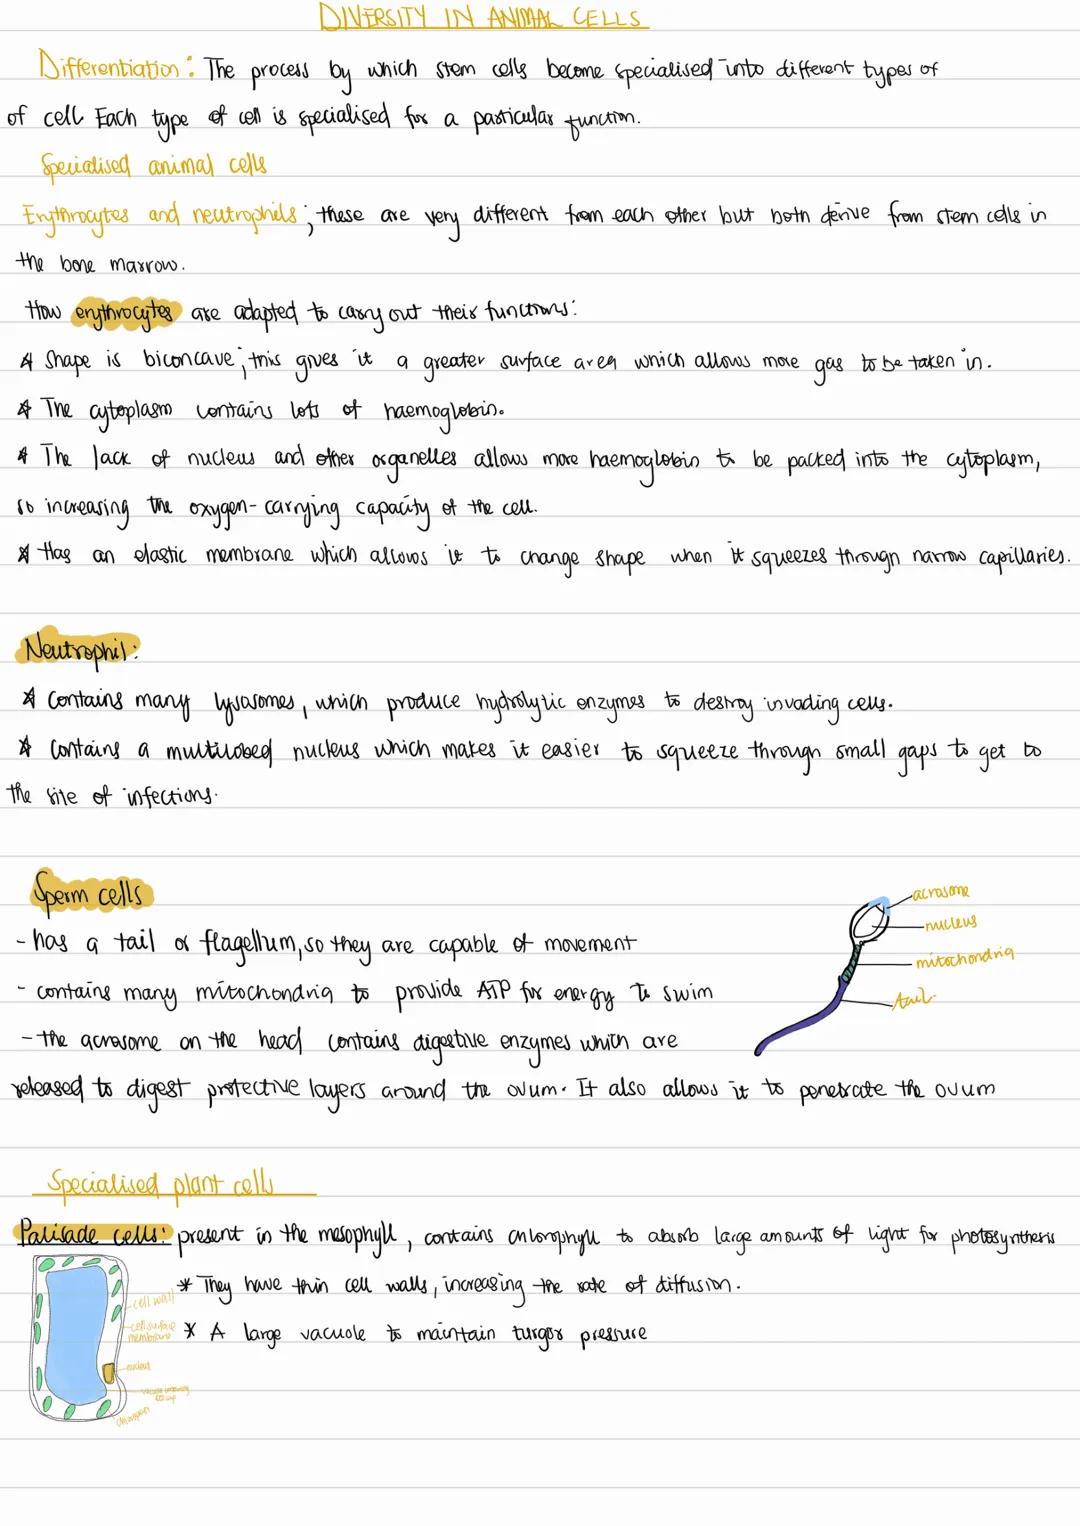 DIVERSITY IN ANIMAL CELLS
Differentiation: The process by which stem cells become specialised into different types of
of cell. Each type of cell is specialised for a particular function.
Specialised animal cells
Erythrocytes and neutrophils; these are very different from each other but both derive from stem cells in
the bone marrow.
How erythrocytes are adapted to carry out their functions:
* Shape is biconcave; this gives it a greater surface area which allows more gas to be taken in.
* The cytoplasm contains lots of haemoglobin.
* The lack of nucleus and other organelles allows more haemoglobin to be packed into the cytoplasm,
so increasing the oxygen-carrying capacity of the cell.
* Has an elastic membrane which allows it to change shape when it squeezes through narrow capillaries.
Neutrophil:
* Contains many lysosomes, which produce hydrolytic enzymes to destroy invading cells.
* Contains a multilobed nucleus which makes it easier to squeeze through small gaps to get to
the site of infections.
Sperm cells
- has a tail or flagellum, so they are capable of movement
- contains many mitochondria to provide ATP for energy to swim
- the acrosome on the head contains digestive enzymes which are
released to digest protective layers around the ovum. It also allows it to penetrate the ovum
acrosome
nucleus
mitochondria
tail.
Specialised plant cells
Palisade cells: present in the mesophyll, contains chlorophyll to absorb large amounts of light for photosynthesis
* They have thin cell walls, increasing the rate of diffusion.
* A large vacuole to maintain turgor pressure
cell wall
cell surface
membrane
nucleus